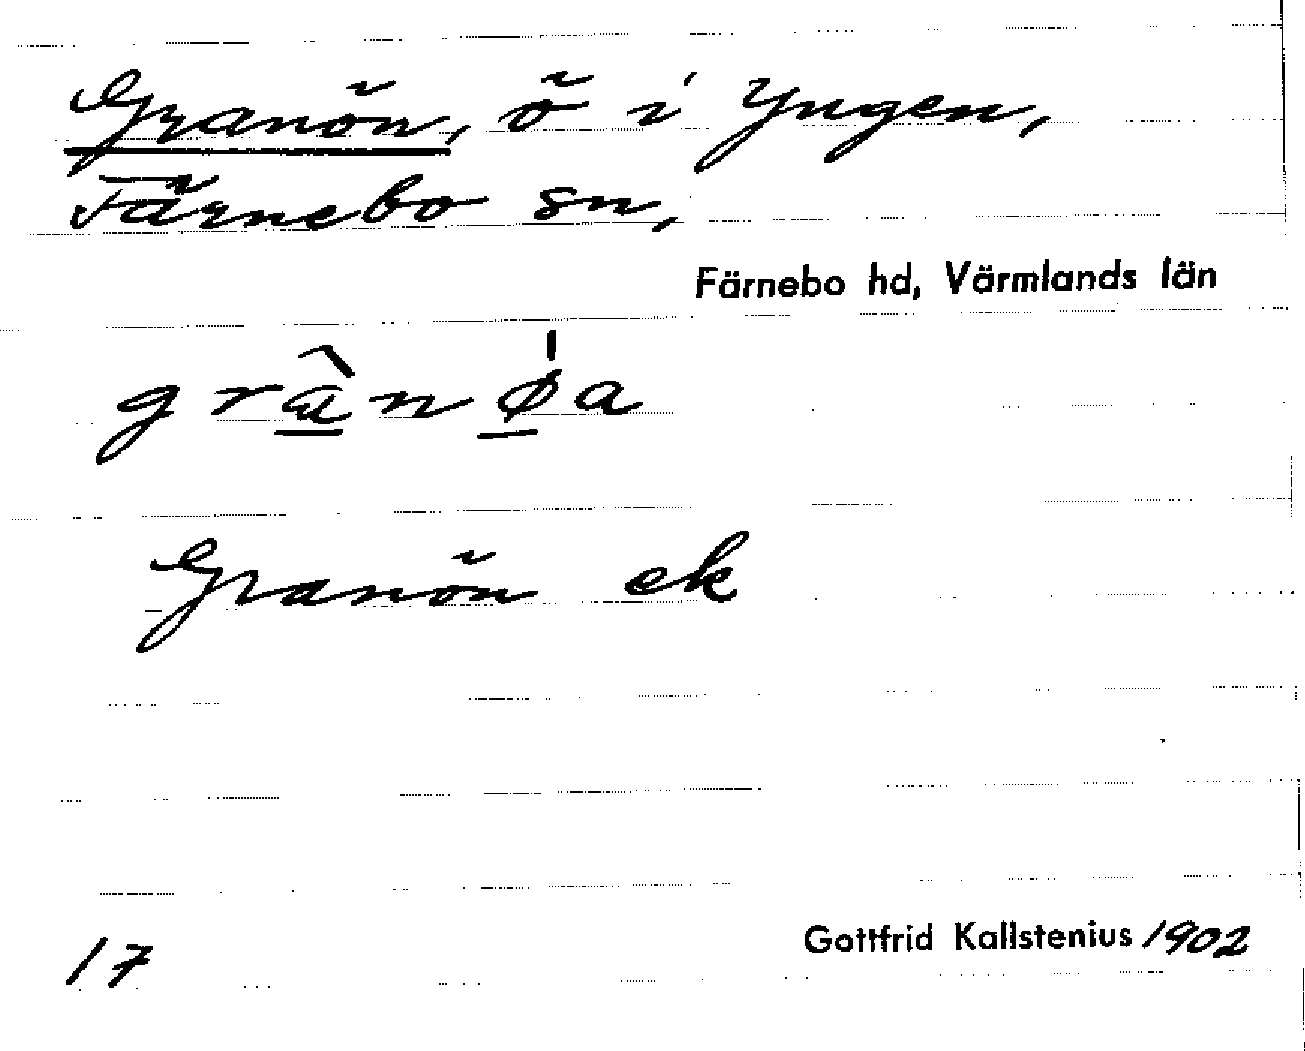 Granön, ö i Yngen,
Färnebo sn,
Färnebo hd, Värmlands län
grànø̍a
Granön ek
17 Gottfrid Kallstenius 1902